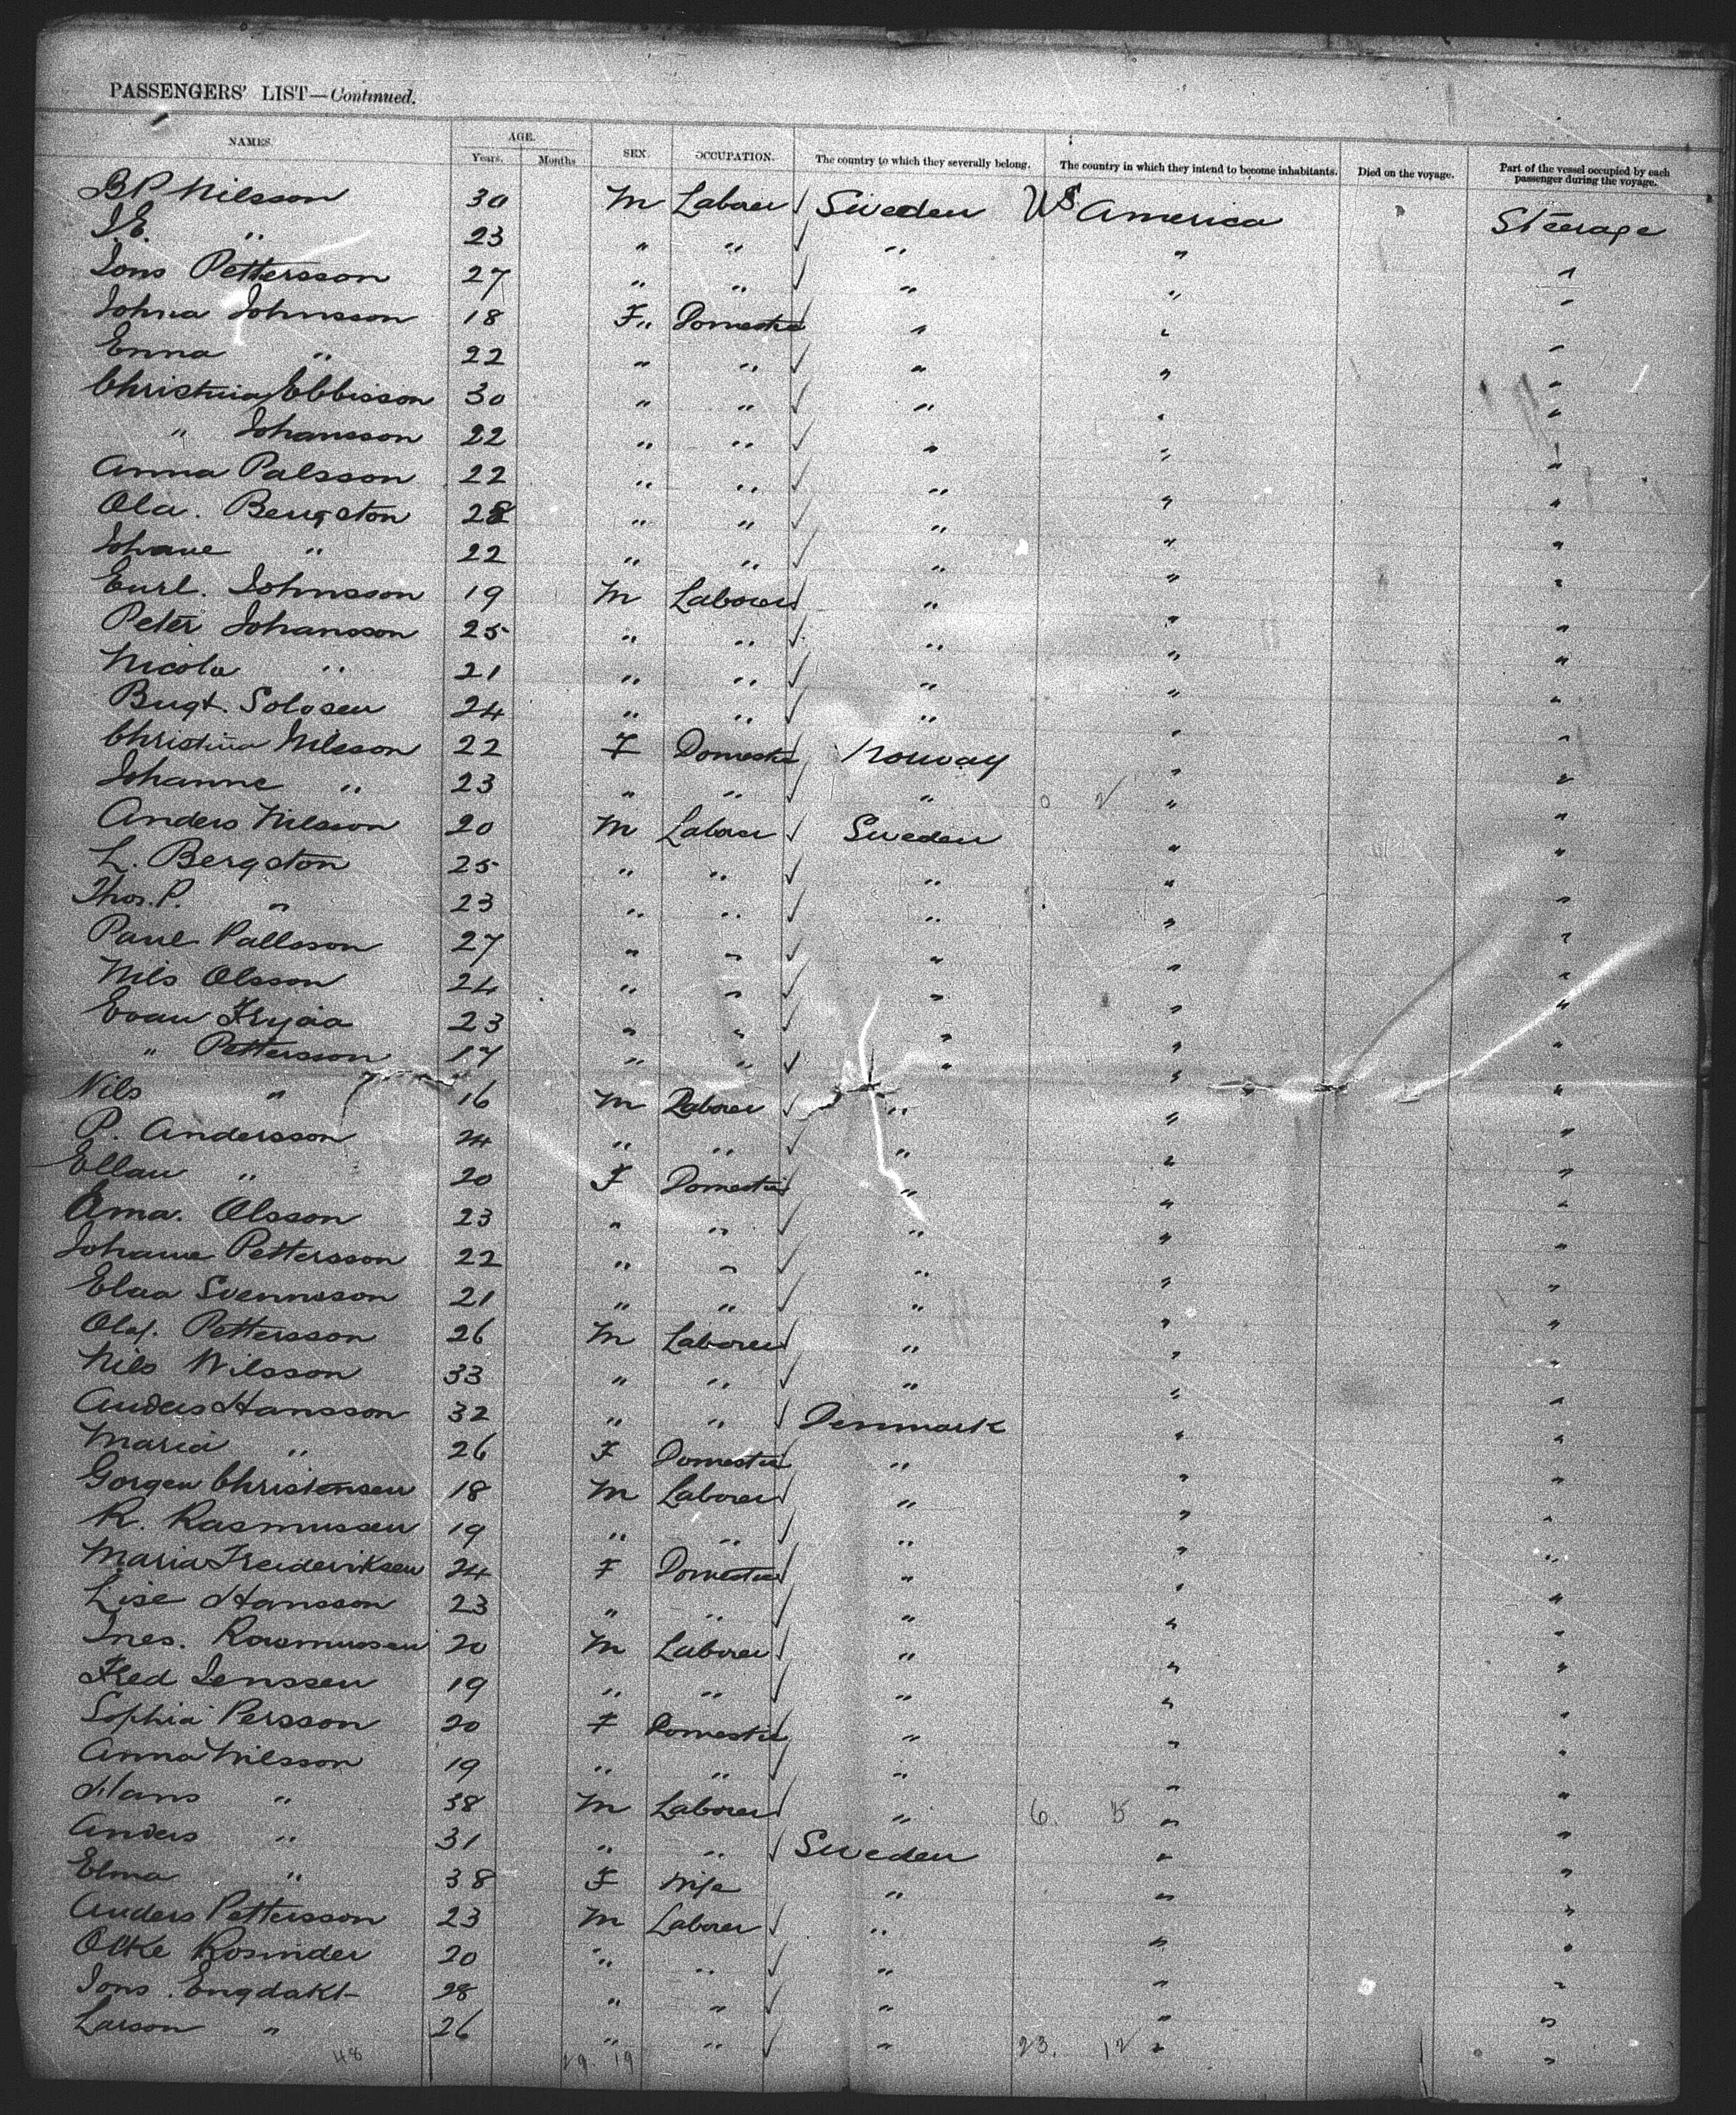 PASSENGERS' LIST—Continued.
NAMES. AGE. Years. Months. SEX. OCCUPATION. The country to which they severally belong. The country in which they intend to become inhabitants. Died on the voyage. Part of the vessel occupied by each passenger during the voyage.
B P Nilsson 30 M Laborer Sweden US America Steerage
J.E. " 23 " " " " "
Jons Pettersson 27 " " " " "
Johna Johnsson 18 F " Domestic " " "
Enna " 22 " " " " "
Christina Ebbisson 30 " " " " "
" Johansson 22 " " " " "
Anna Palsson 22 " " " " "
Ola. Bengston 28 " " " " "
Johane " 22 " " " " "
Johnsson 19 M Laborer " " "
Peter Johansson 25 " " " " "
Nicola " 21 " " " " "
Bugt. Solosen 24 " " " " "
Christina Nilsson 22 F Domestic Norway " "
Johanne " 23 " " " " "
Anders Nilsson 20 M Laborer Sweden " "
L. Bergston 25 " " " " "
Thos. P. " 23 " " " " "
Paul Pallsson 27 " " " " "
Nils Olsson 24 " " " " "
Evan 23 " " " " "
" Pettersson 17 " " " " "
Nils " 16 M Laborer " " "
P. Andersson 24 " " " " "
Ellan " 20 F Domestic " " "
Ama. Olsson 23 " " " " "
Johane Pettersson 22 " " " " "
Elaa Svennsson 21 " " " " "
Olaf. Pettersson 26 M Laborer " " "
Nils Nilsson 33 " " " " "
Anders Hansson 32 " " Denmark " "
Maria " 26 F Domestic " " "
Gorgen Christensen 18 M Laborer " " "
R. Rasmussen 19 " " " " "
Maria Freideriksen 24 F Domestic " " "
Lise Hansson 23 " " " " "
Ines. Rasmussen 20 M Laborer " " "
Fred Jenssen 19 " " " " "
Sophia Persson 20 F Domestic " " "
Anna Nilsson 19 " " " " "
Hans " 38 M Laborer " 6. 5 " "
Anders " 31 " " Sweden " "
Elma " 38 F Wife " " "
Anders Pettersson 23 M Laborer " " "
Olke Rosinder 20 " " " " "
Jons. Engdahl 28 " " " " "
Larson " 26 " " " 23. 12 " "
48 29. 19